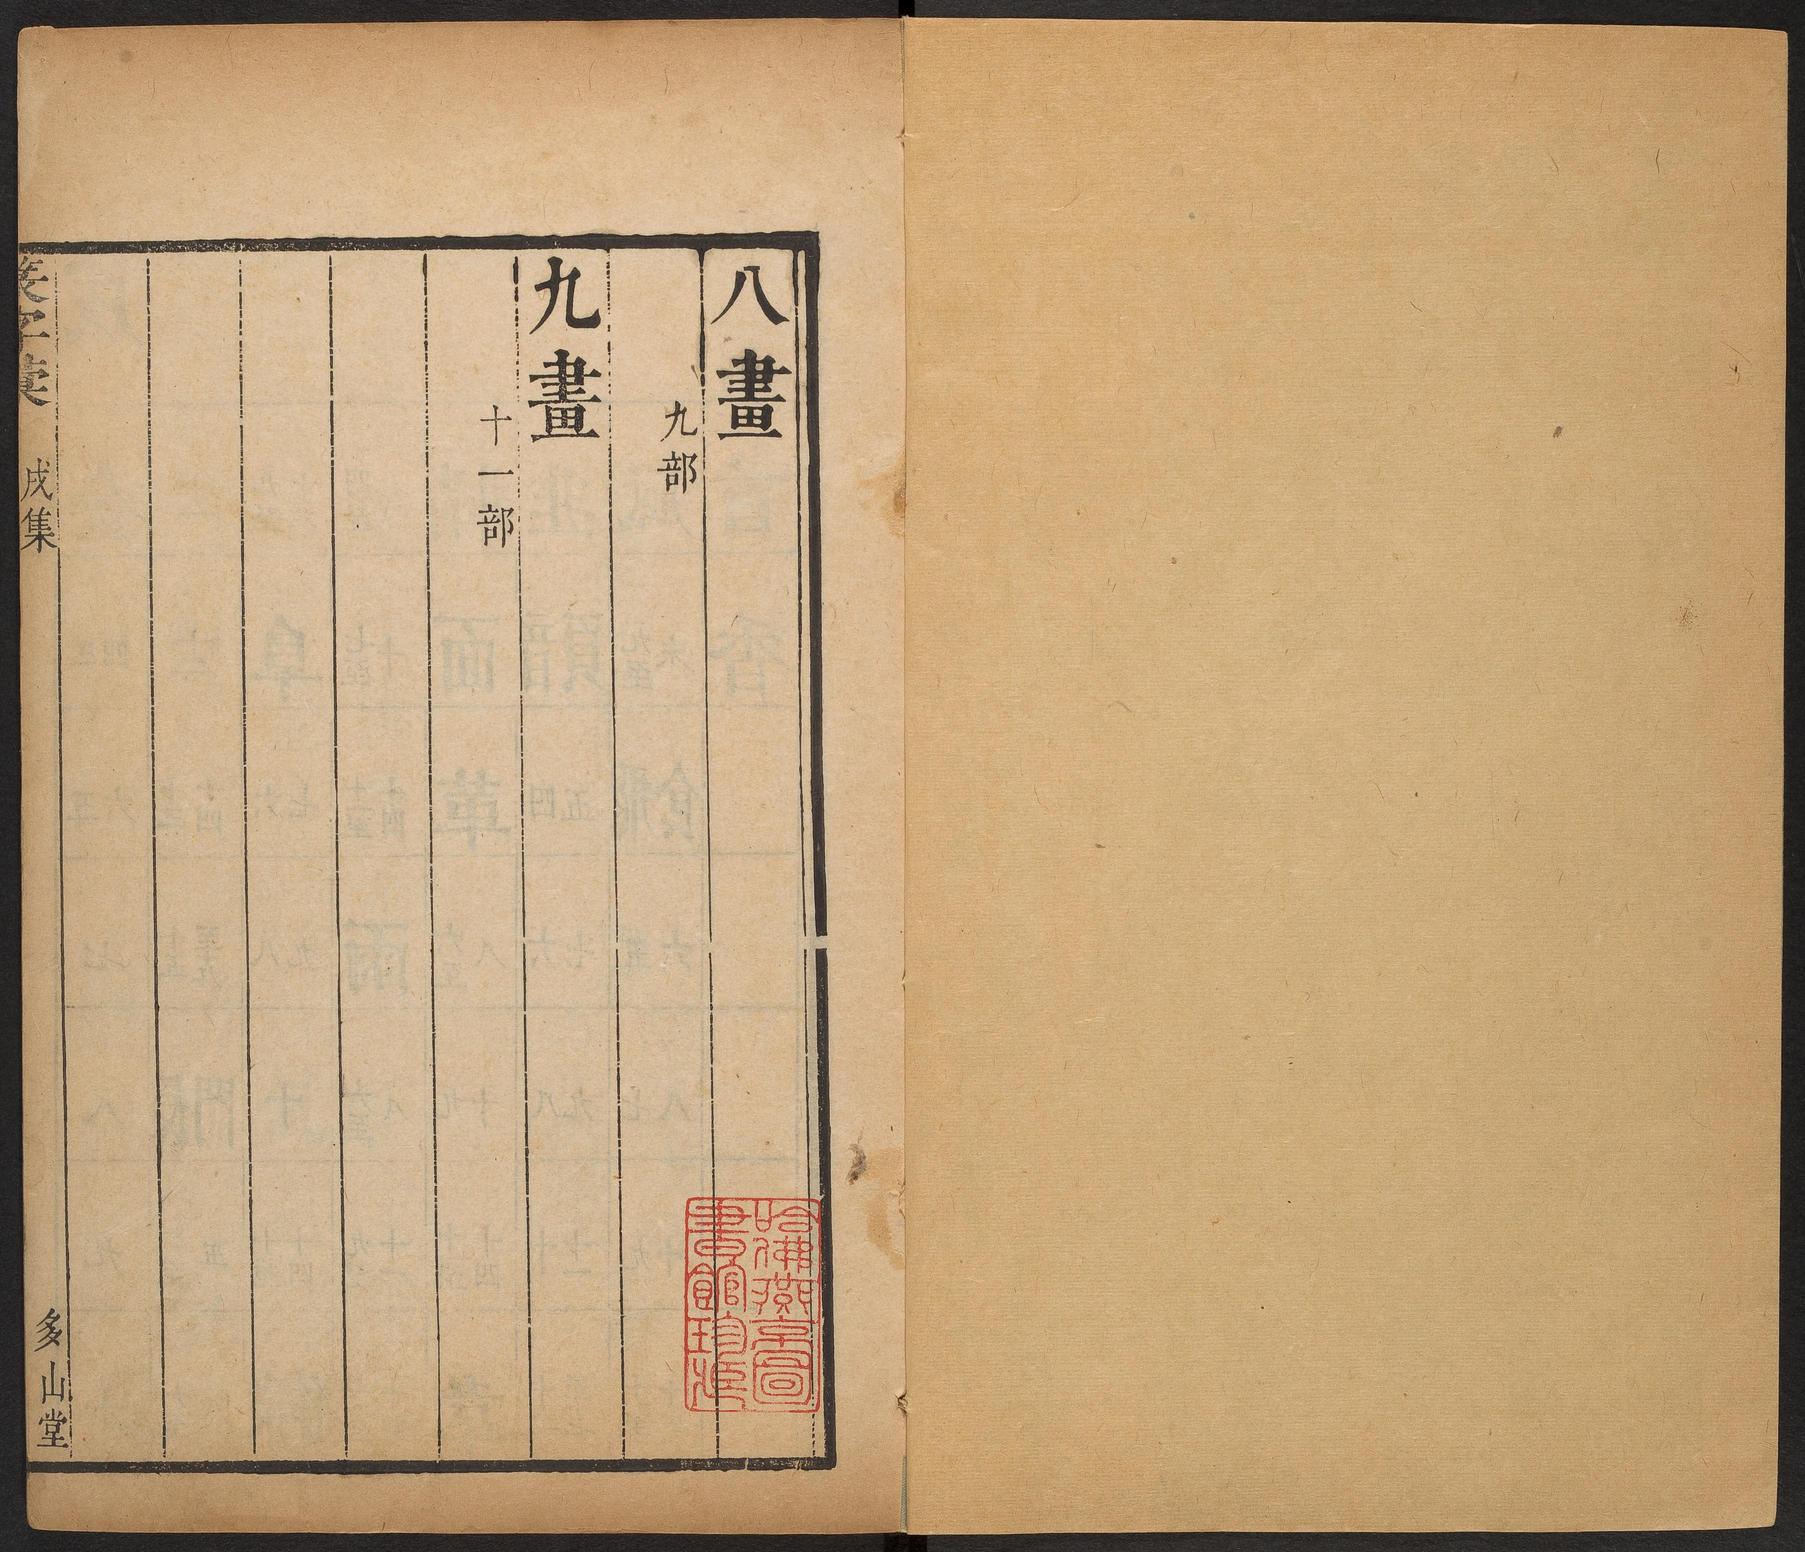 八畫
九部
九畫
十一部
字彙
戌集
多山堂
哈佛燕京圖
書館珍藏